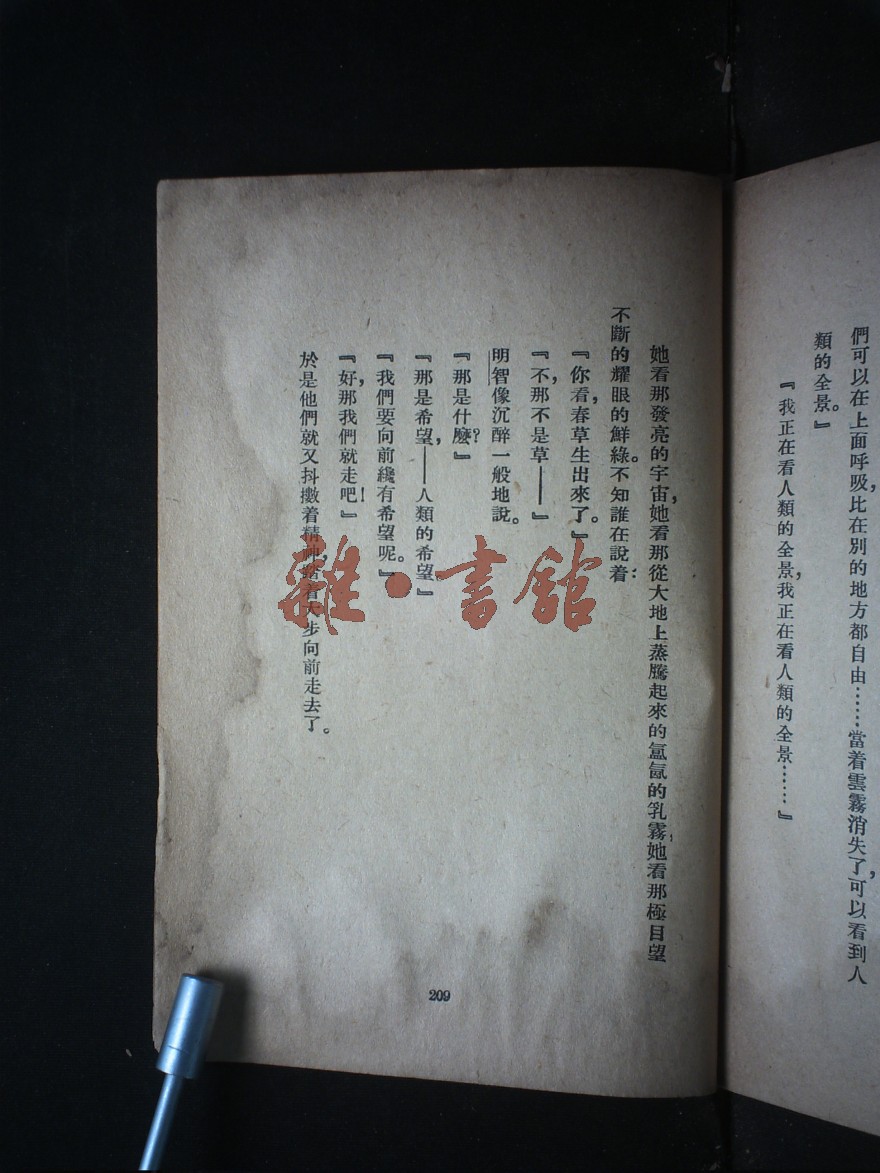 們可以在上面呼吸，比在別的地方都自由……當着雲霧消失了，可以看到人
類的全景。』
『我正在看人類的全景，我正在看人類的全景……』
她看那發亮的宇宙，她看那從大地上蒸騰起來的氳氤的乳霧，她看那極目望
不斷的耀眼的鮮綠。不知誰在說着：
『你看，春草生出來了。』
『不，那不是草——』
明智像沉醉一般地說。
『那是什麼？』
『那是希望，——人類的希望』
『我們要向前纔有希望呢。』
『好，那我們就走吧！』
於是他們就又抖擻着精神，着大步向前走去了。
209
雜·書館